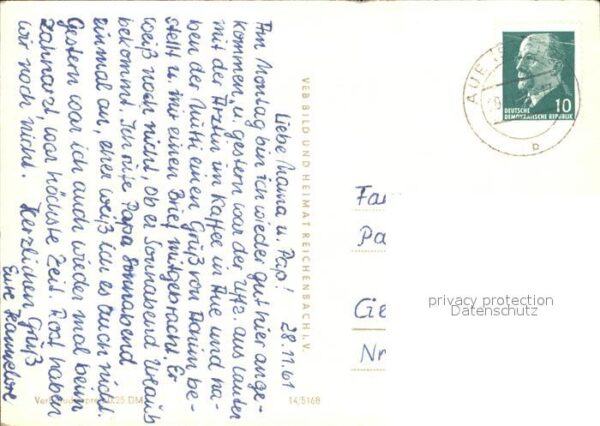 28.11.61
Liebe Mama u. Pap!
Am Montag bin ich wieder gut hier ange-
kommen, u. gestern war der Uffz. aus
mit der Ärztin im Kaffee in Aue und ha-
ben der Mutti einen Gruß von be-
stellt u. mir einen Brief mitgebracht. Er
weiß noch nicht, ob er Sonnabend Urlaub
bekommt. Ich Papa Sonnabend
einmal an, eher weiß ich es auch nicht.
Gestern war ich auch wieder mal beim
Zahnarzt war höchste Zeit. Rod haben
wir noch nicht. Herzlichen Gruß
Eure Hannelore
VEB BILD UND HEIMAT REICHENBACH i. V.
14/5168
DEUTSCHE
DEMOKRATISCHE REPUBLIK
10
AUE
b
Fa
Pa
Ge
Nr
privacy protection
Datenschutz